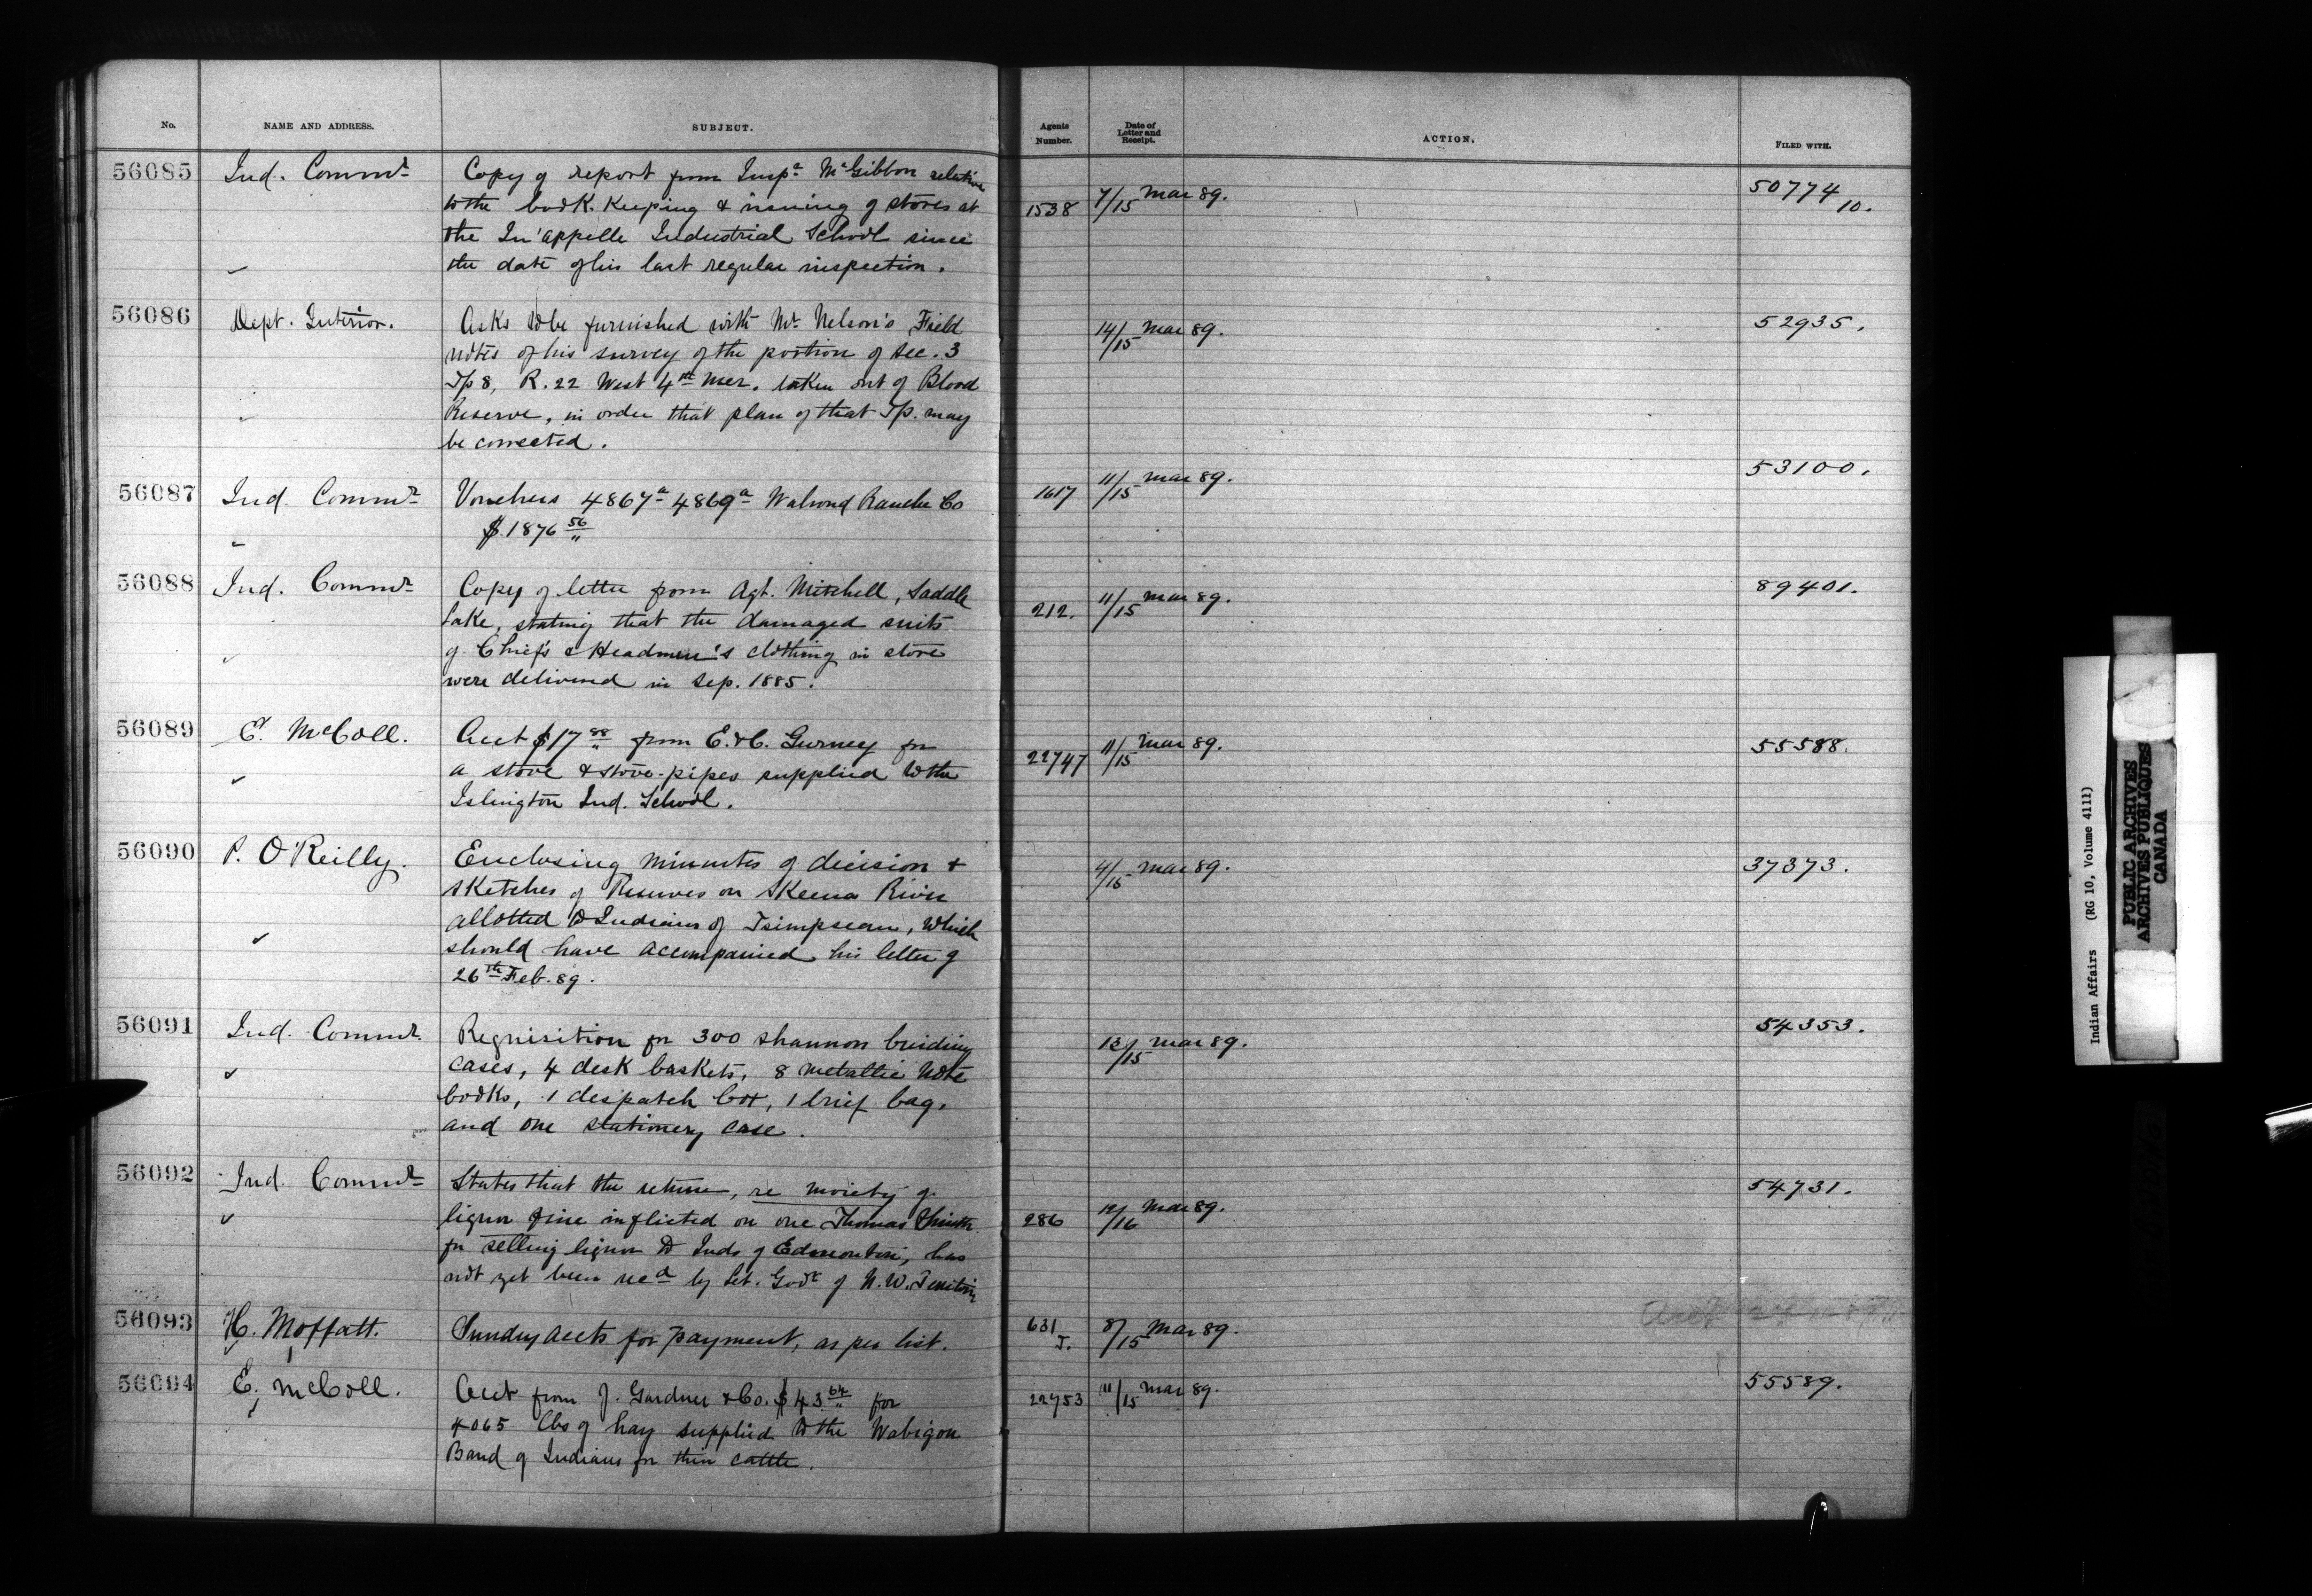 No. NAME AND ADDRESS. SUBJECT. Agents Number. Date of Letter and Receipt. ACTION. FILED WITH.
56085 Ind. Commr Copy of report from Inspr McGibbon relative
to the book-keeping & issuing of stores at 1538 7/15 Mar 89. 50774 10.
the Qu'appelle Industrial School since
the date of his last regular inspection.
56086 Dept. Interior. Asks to be furnished with Mr Nelson's Field 14/15 Mar 89. 52935.
notes of his survey of the portion of Sec. 3
Tp 8, R. 22 West 4th Mer. taken out of Blood
Reserve, in order that plan of that Tp. may
be corrected.
56087 Ind Commr Vouchers 4867a 4869a Walrond Ranche Co 1617 11/15 Mar 89. 53100.
$1876 56
56088 Ind. Commr Copy of letter from Agt. Mitchell, Saddle 212. 11/15 Mar 89. 89401.
Lake, stating that the damaged suits
of Chief's & Headmen's clothing in store
were delivered in Sep. 1885.
56089 E. McColl. Acct $17 88 from E. & C. Gurney for 22747 11/15 Mar 89. 55588.
a stove & stove-pipes supplied to the
Islington Ind. School.
56090 P. O'Reilly. Enclosing minutes of decision & 4/15 Mar 89. 37373.
sketches of Reserves on Skeena River
allotted to Indians of Tsimpsean, which
should have accompanied his letter of
26th Feb. 89.
56091 Ind. Commr. Requisition for 300 shannon binding 13/15 Mar 89. 54353.
cases, 4 desk baskets, 8 metallic note
books, 1 despatch box, 1 brief bag,
and one stationery case.
56092 Ind. Commr States that the return, re moiety of 54731.
liquor fine inflicted on one Thomas Smith 286 12/16 Mar 89.
for selling liquor to Inds of Edmonton, has
not yet been recd by Let. Govr of N.W. Territories
56093 H. Moffatt. Sundry accts for payment, as per list. 631 J. 8/15 Mar 89.
56094 E. McColl. Acct from J. Gardner & Co. $43 64 for 22753 11/15 Mar 89. 55589.
4065 lbs of hay supplied to the Wabigon
Band of Indians for their cattle.
Indian Affairs (RG 10, Volume 4111)
PUBLIC ARCHIVES
ARCHIVES PUBLIQUES
CANADA